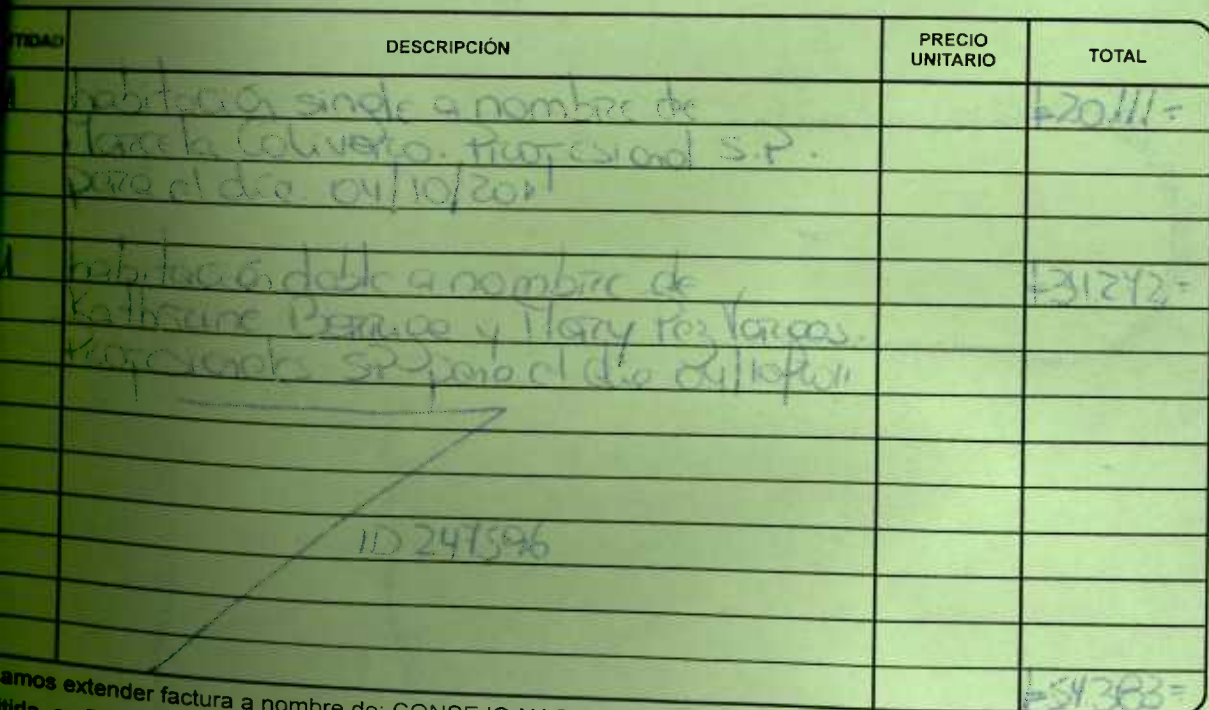 TIDAD DESCRIPCIÓN PRECIO UNITARIO TOTAL
1 habitación single a nombre de
Marcela Profesional S.P.
para el día 04/10/2011
1 habitación doble a nombre de
Katherine y Mary Paz Vargas.
Profesionales SP para el día 04/10/2011
ID 247596
=54.383=
amos extender factura a nombre de: